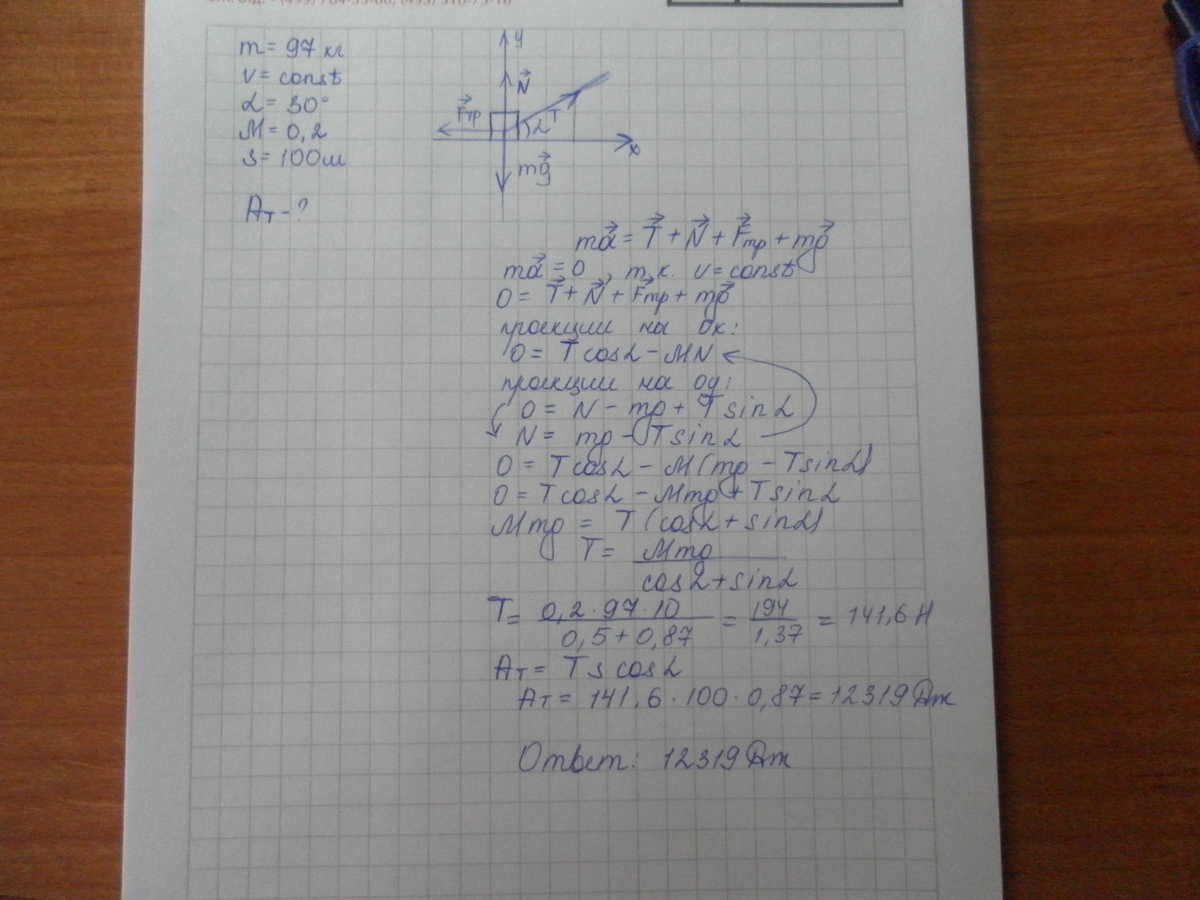 m = 97 кг
v = const
α = 30°
M = 0,2
S = 100м
Aт - ?
y
N
Fтр
T
α
x
mg
ma = T + N + Fтр + mg
ma = 0, т.к. v = const
0 = T + N + Fтр + mg
проекции на Ox:
0 = T cosα - MN
проекции на oy:
0 = N - mg + T sinα
N = mg - T sinα
0 = T cosα - M(mg - T sinα)
0 = T cosα - Mmg + T sinα
Mmg = T (cosα + sinα)
T = Mmg / cosα + sinα
T = 0,2 · 97 · 10 / 0,5 + 0,87 = 194 / 1,37 = 141,6 H
Aт = T s cosα
Aт = 141,6 · 100 · 0,87 = 12319 Дж
Ответ: 12319 Дж